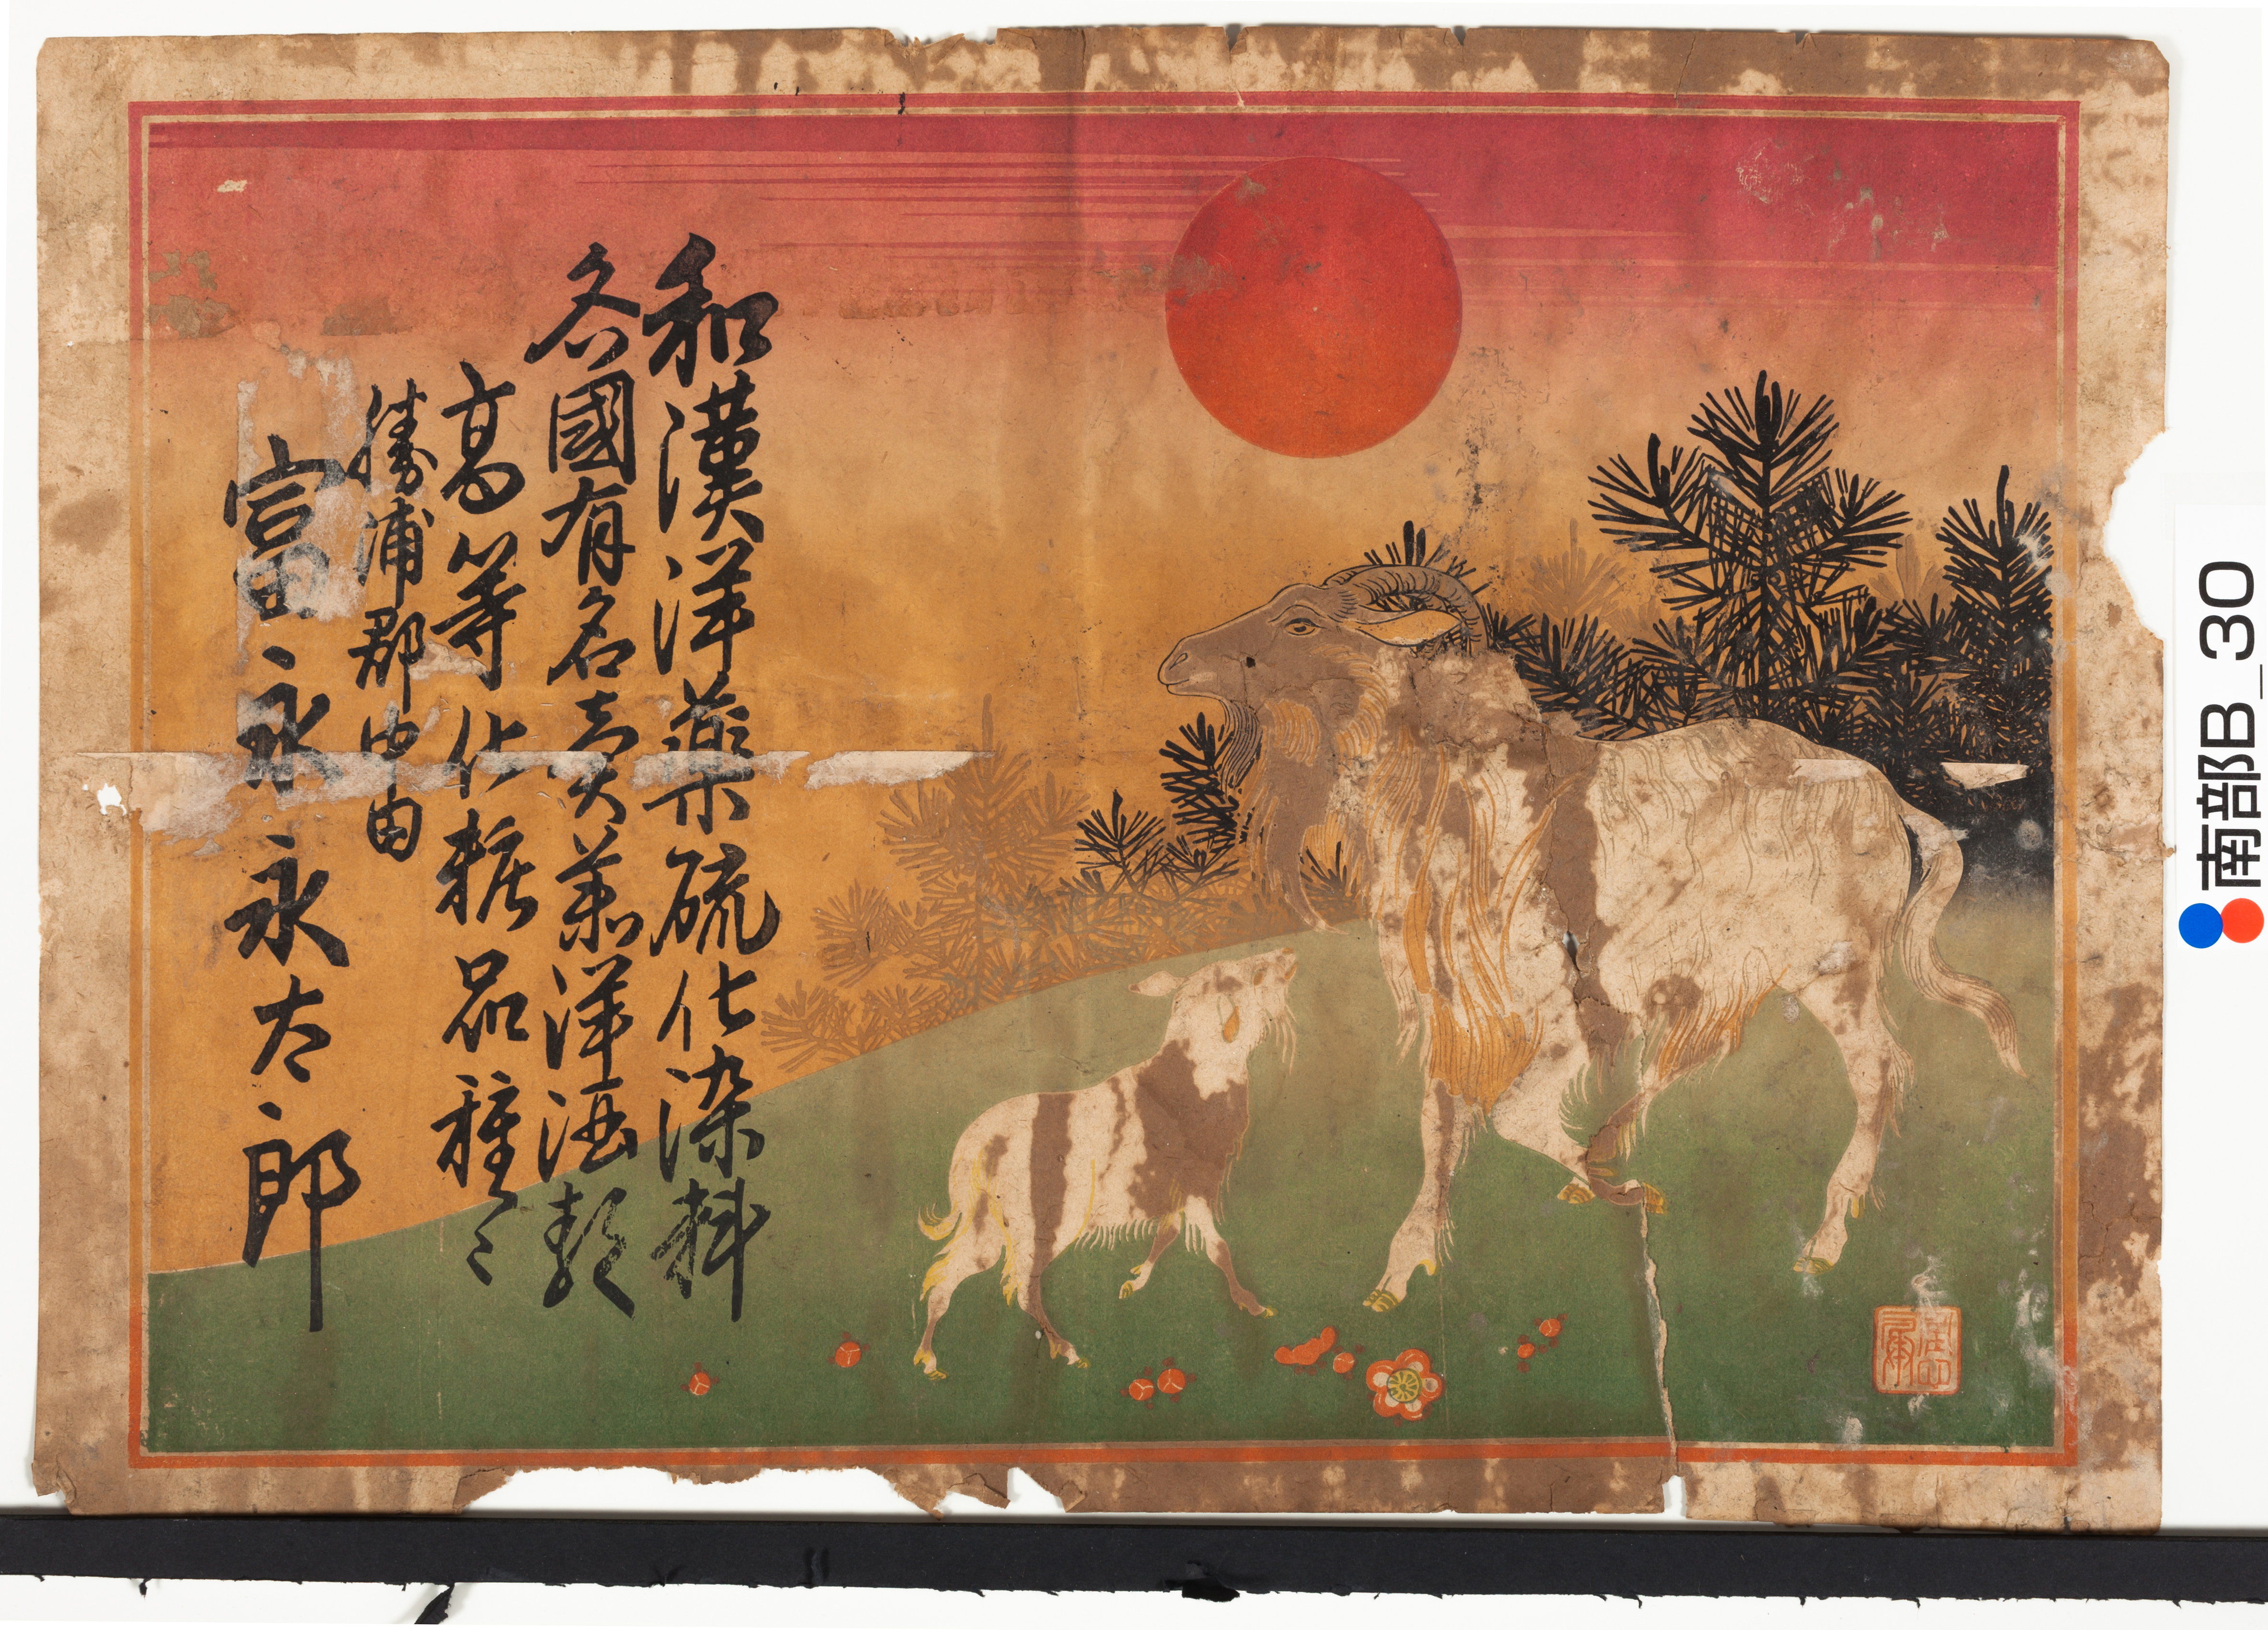 和漢洋薬硫化染料
各國有名売薬洋酒類
高等化粧品種々
勝浦郡中田
富永永太郎
南部B_30